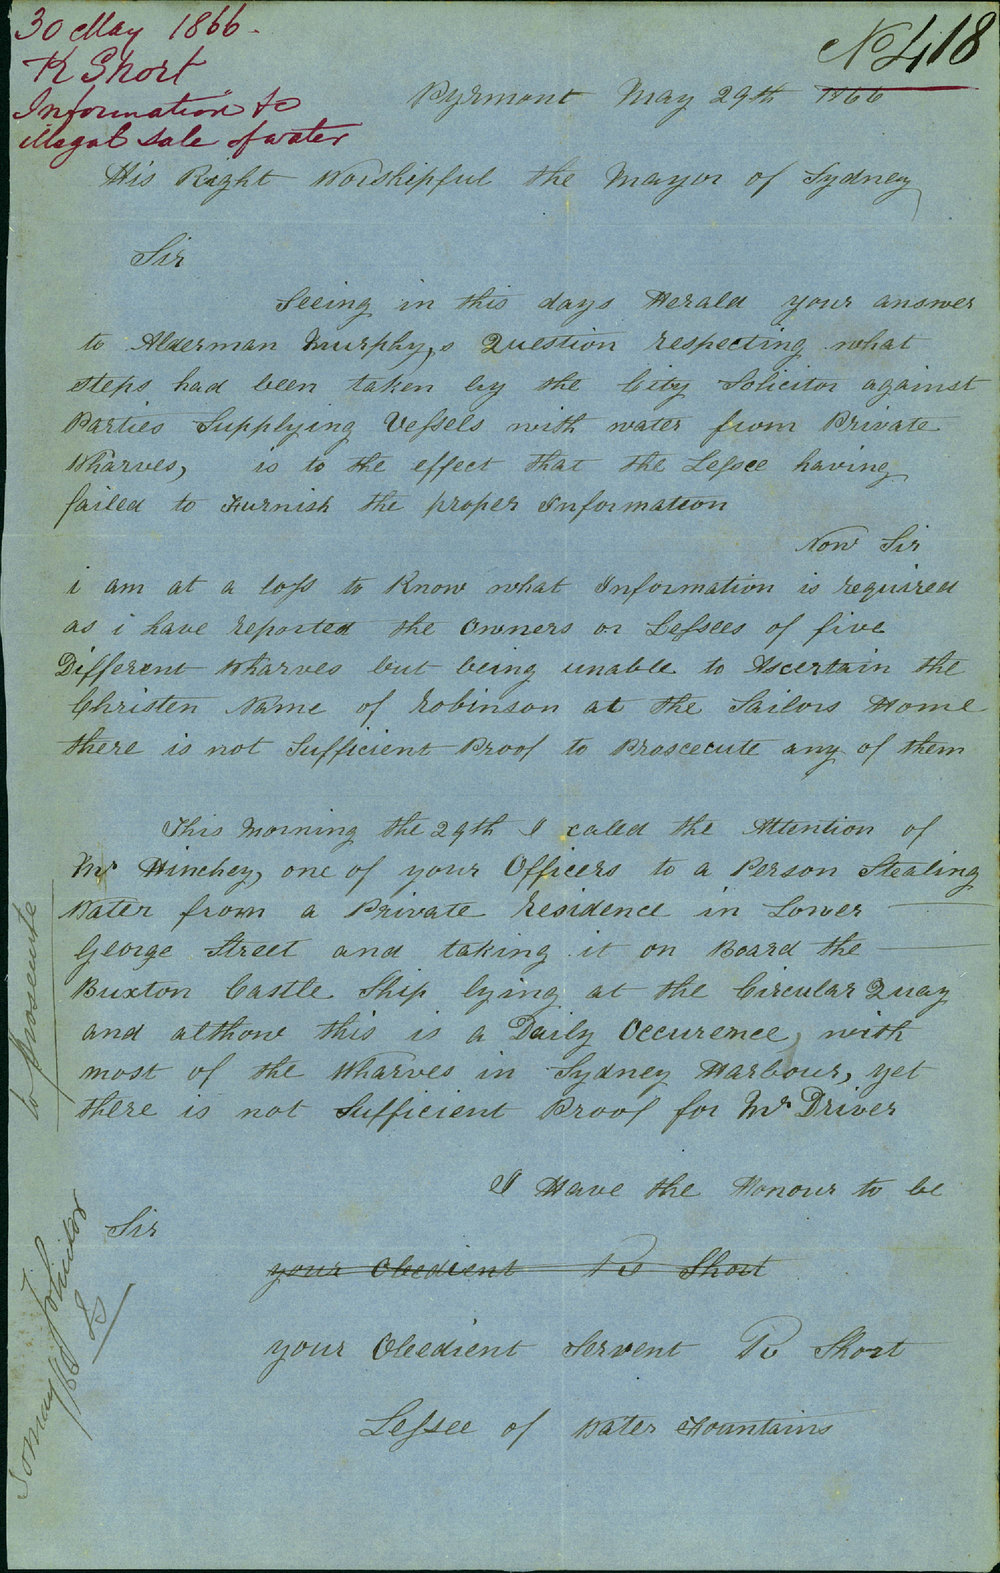 30 May 1866.
R Short
Information &c
illegal sale of water
No 418
Pyrmont May 29th 1866
His Right Worshipful the Mayor of Sydney
Sir
Seeing in this days Herald your answer
to Alderman Murphy,s Question respecting what
steps had been taken by the City Solicitor against
Parties Supplying Vessels with water from Private
Wharves, is to the effect that the Lessee having
failed to Furnish the proper Information
Now Sir
i am at a loss to Know what Information is required
as i have reported the Owners or Lessees of five
Different Wharves but being unable to Ascertain the
Christen Name of Robinson at the Sailors Home
there is not Sufficient Proof to Prosecute any of them
This Morning the 29th I caled the Attention of
Mr Hinchey, one of your Officers to a Person Stealing
Water from a Private residence in Lower
George Street and taking it on Board the
Buxton Castle Ship lying at the Circular Quay
and althow this is a Daily Occurence, with
most of the Wharves in Sydney Harbour, yet
there is not Sufficient Proof for Mr Driver
I Have the Honour to be
Sir
your Obedient Rd Short
your Obedient Servent Rd Short
Lessee of Water Fountains
to prosecute
Solicitor
30 May/66